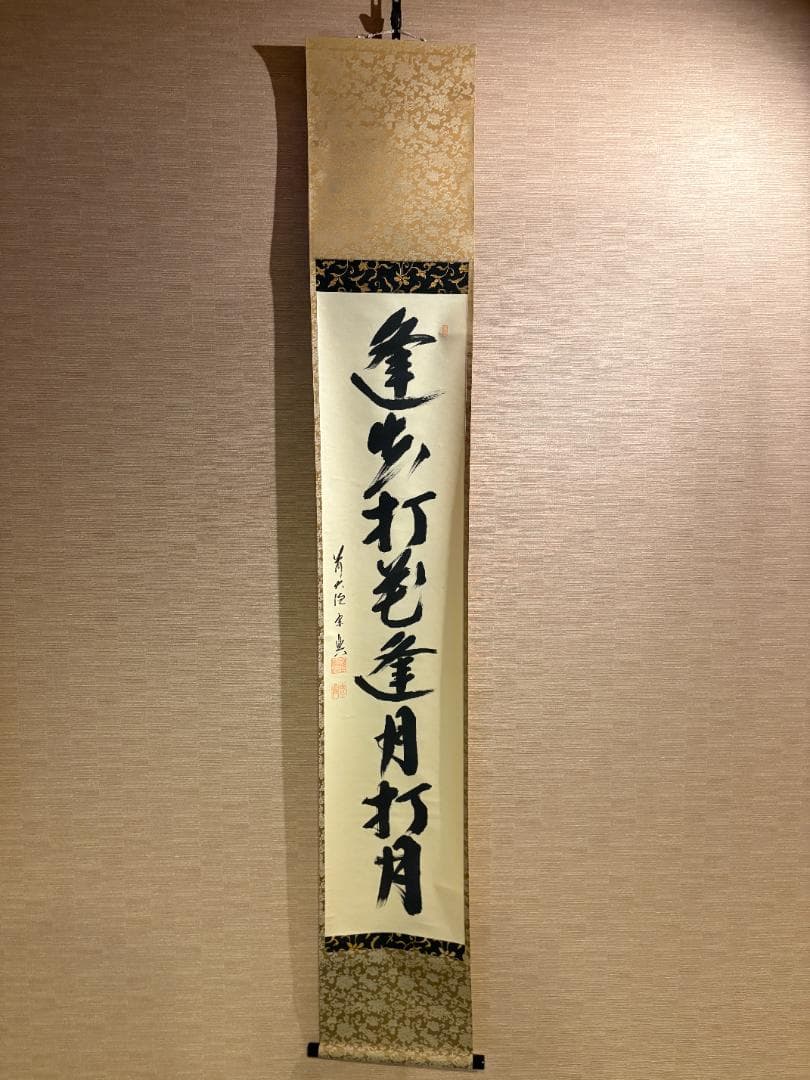 逢花打花逢月打月
前大徳宗興